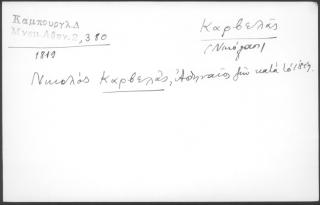 Καμπούρογλ Δ
Μνημ. Αθην. 2, 380
1819
Καρβελᾶς
(Νικόλαος)
Νικολός Καρβελᾶς, Ἀθηναῖος ζῶν κατά τό 1819.